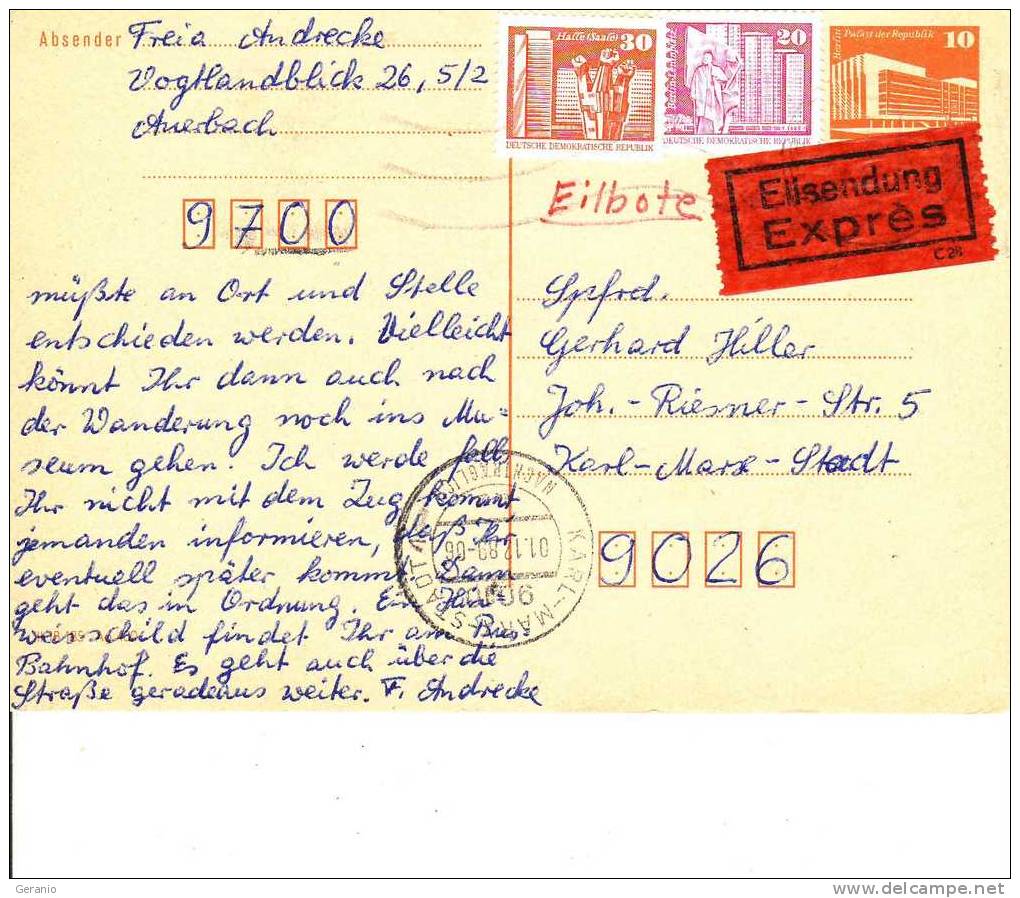 Absender Freia Andrecke
Vogtlandblick 26, 5/2
Auerbach
9700
müßte an Ort und Stelle
entschieden werden. Vielleicht
könnt Ihr dann auch nach
der Wanderung noch ins Mu=
seum gehen. Ich werde falls
Ihr nicht mit dem Zug kommt
jemanden informieren, daß Ihr
eventuell später kommt. Dann
geht das in Ordnung. Ein Hin=
weisschild findet Ihr am Bus
Bahnhof. Es geht auch über die
Straße geradeaus weiter. F. Andrecke
Halle (Saale) 30
DEUTSCHE DEMOKRATISCHE REPUBLIK
20
DEUTSCHE DEMOKRATISCHE REPUBLIK
Berlin
Palast der Republik 10
Eilbote
Eilsendung
Exprès
C 28
Spfrd.
Gerhard Hiller
Joh.-Riesner-Str. 5
Karl-Marx-Stadt
9026
KARL-MARX-STADT
01.12.89-06
Geranio
delcampe.net